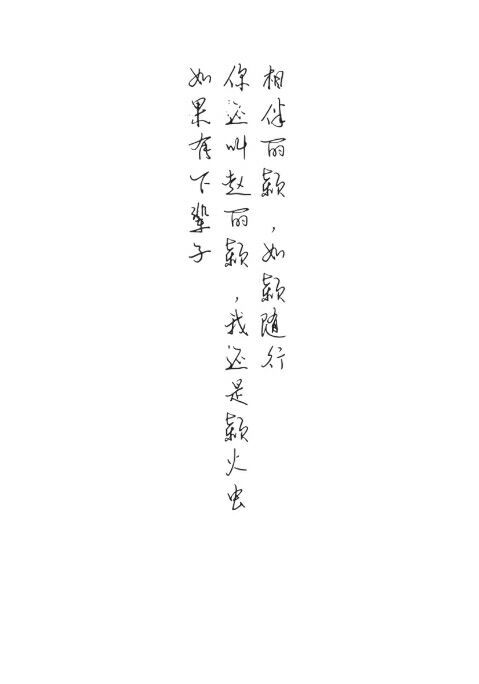 如果有下辈子
你还叫赵丽颖，我还是颖火虫
相伴丽颖，如颖随行